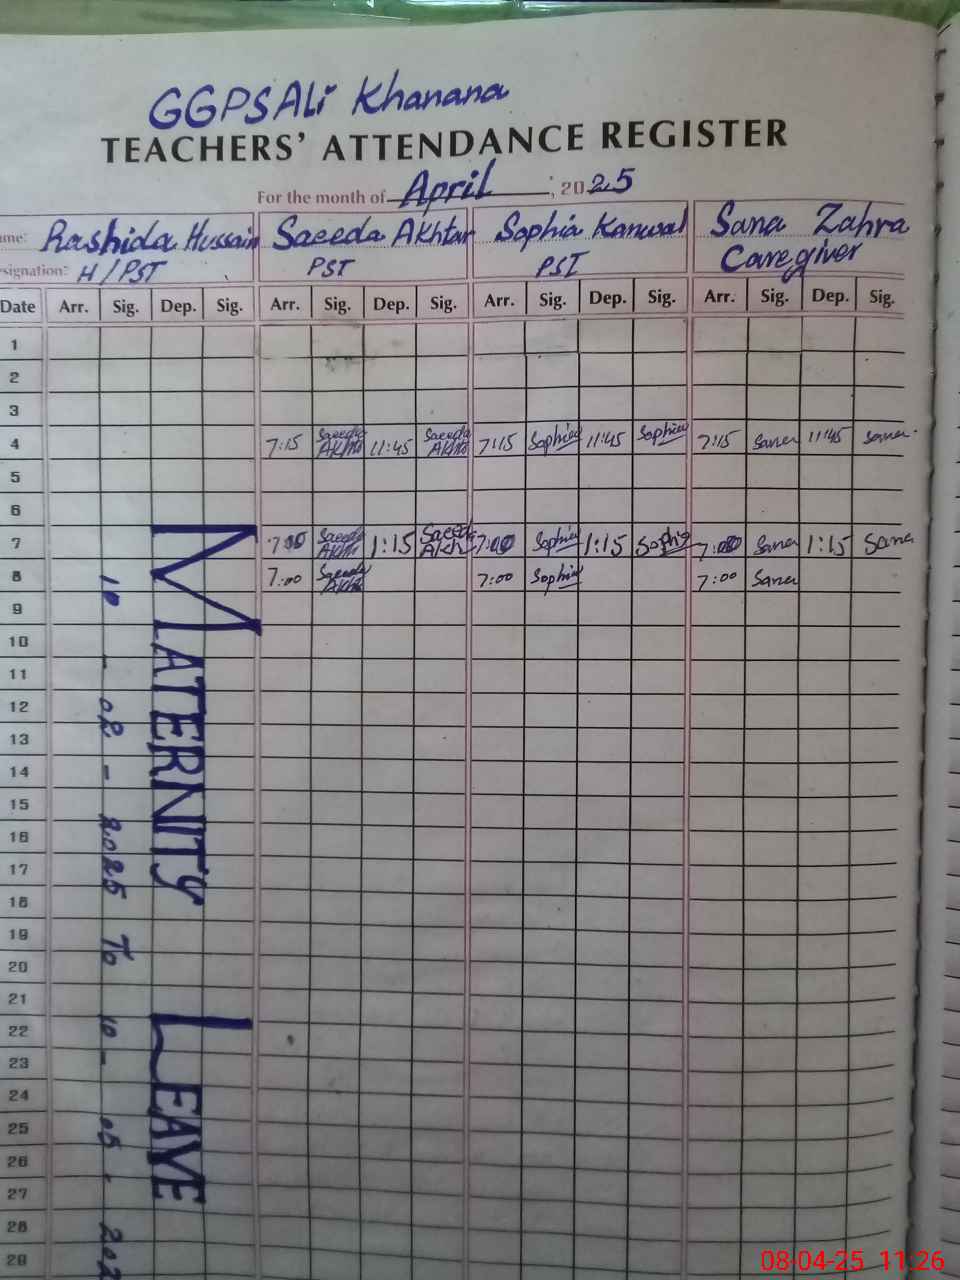 GGPS Ali Khanana
TEACHERS' ATTENDANCE REGISTER
For the month of April ; 2025
ame: Rashida Hussain Saeeda Akhtar Sophia Kanwal Sana Zahra
signation: H/PST PST PST Caregiver
Date Arr. Sig. Dep. Sig. Arr. Sig. Dep. Sig. Arr. Sig. Dep. Sig. Arr. Sig. Dep. Sig.
1
2
3
4 7:15 Saeeda Akhtar 11:45 Saeeda Akhtar 7:15 Sophia 11:45 Sophia 7:15 Sana 11:45 Sana
5
6
7 7:00 Saeeda Akht 1:15 Saeeda Akh 7:00 Sophia 1:15 Sophia 7:00 Sana 1:15 Sana
8 7:00 Saeeda Akht 7:00 Sophia 7:00 Sana
9
10
11
12
13
14
15
16
17
18
19
20
21
22
23
24
25
26
27
28
29
MATERNITY LEAVE
10 - 02 - 2025 To 10 - 05 - 202
08-04-25 11:26